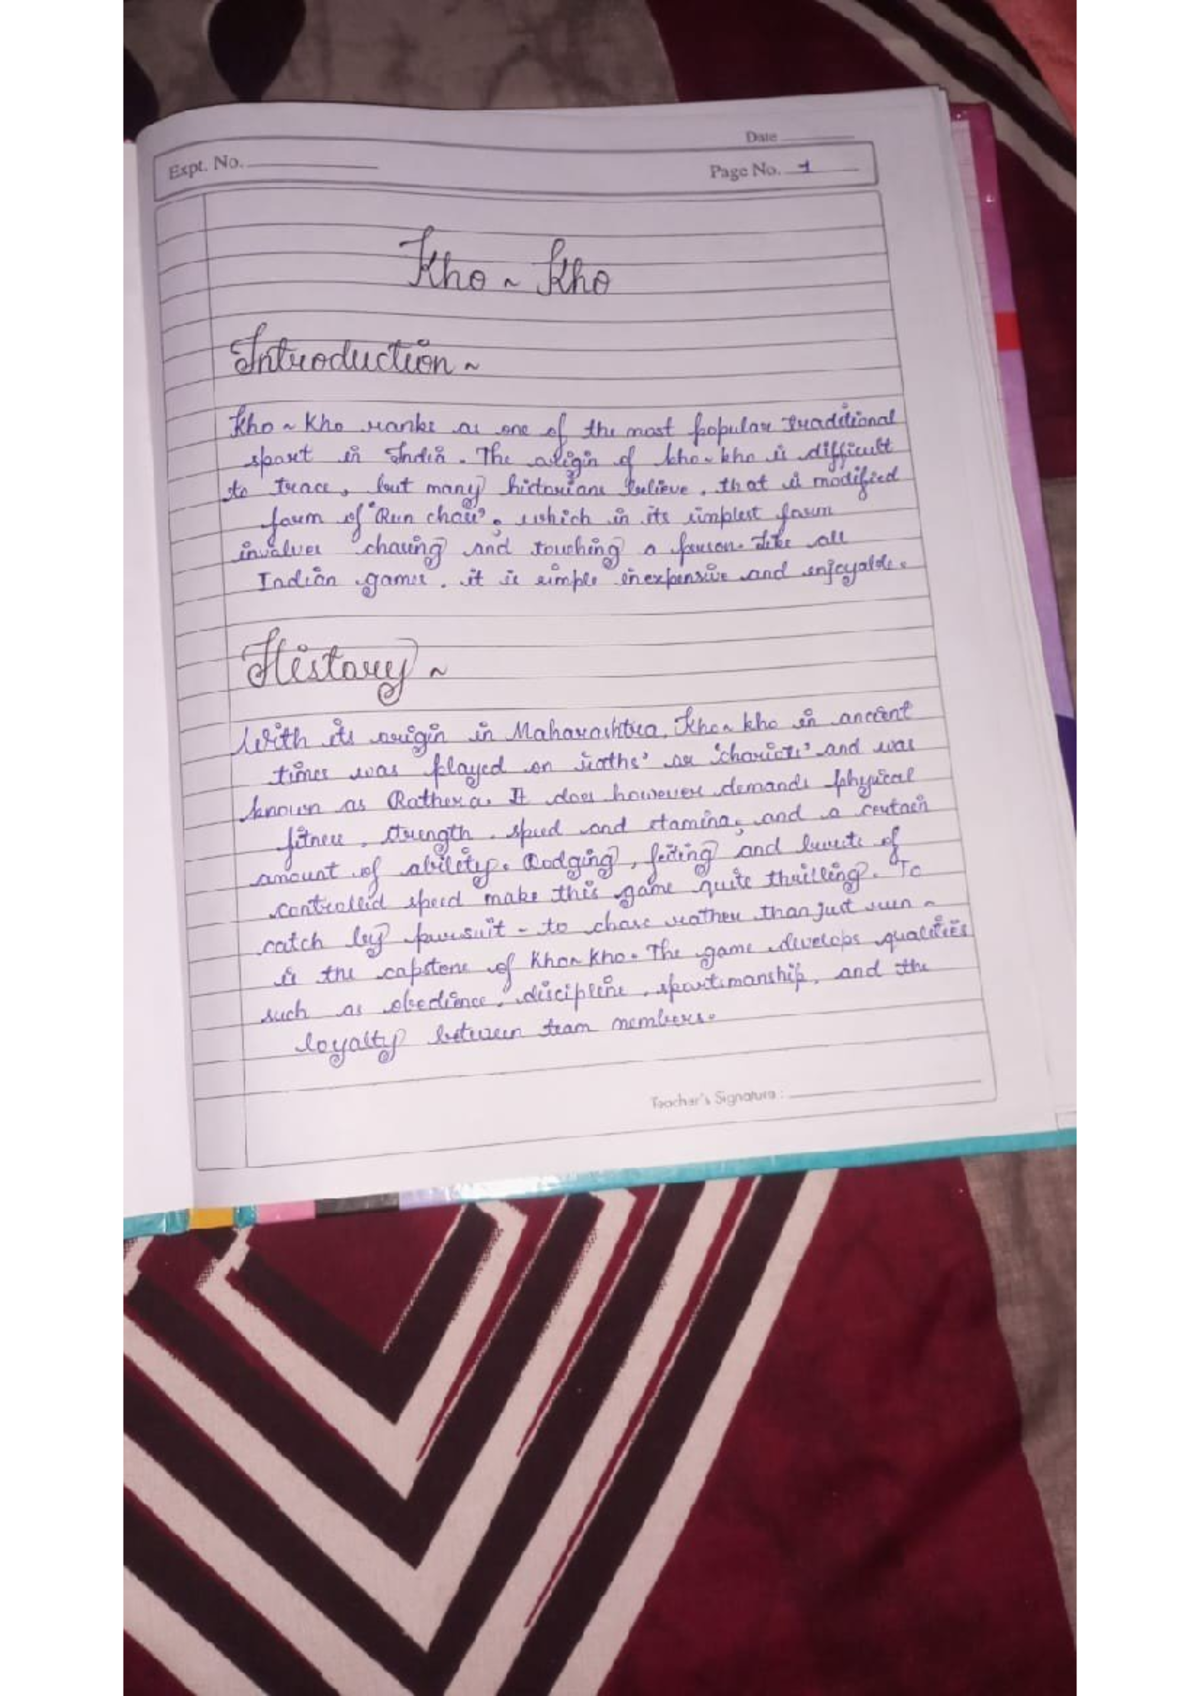 Date
Expt. No.
Page No. 1
Kho ~ Kho
Introduction ~
Kho ~ Kho ranks as one of the most popular traditional
sport in India. The origin of kho~kho is difficult
to trace, but many historians believe, that is modified
form of "Run chase", which in its simplest form
involves chasing and touching a person. Like all
Indian games, it is simple inexpensive and enjoyable.
History ~
With its origin in Maharashtra, Kho~kho in ancient
times was played on 'raths' or 'chariots' and was
known as Rathera. It does however demands physical
fitness, strength, speed and stamina, and a certain
amount of ability. Dodging, feiting and bursts of
controlled speed make this game quite thrilling. To
catch by pursuit - to chase rather than just run ~
is the capstone of Kho~Kho. The game develops qualities
such as obedience, discipline, sportsmanship, and the
loyalty between team members.
Teacher's Signature :